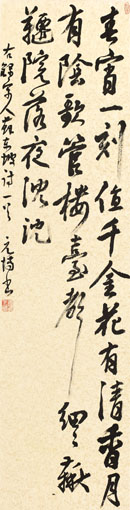 春宵一刻值千金花有清香月
有陰歌管樓臺聲細〻鞦
韆院落夜沈沈
右錄宋人蘇東坡诗一首